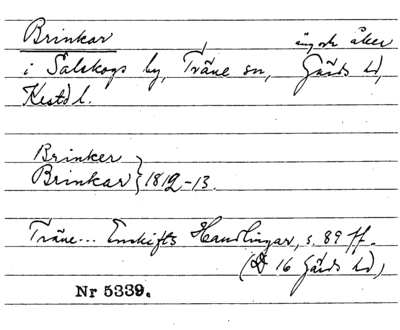 Brinkar äng och åker
i Sälskogs by, Träne sn, Gärds hd,
Kristd l.
Brinker
Brinkar } 1812-13.
Träne... Enskifts Handlingar, s. 89 ff.
(D 16 Gärds hd)
Nr 5339.